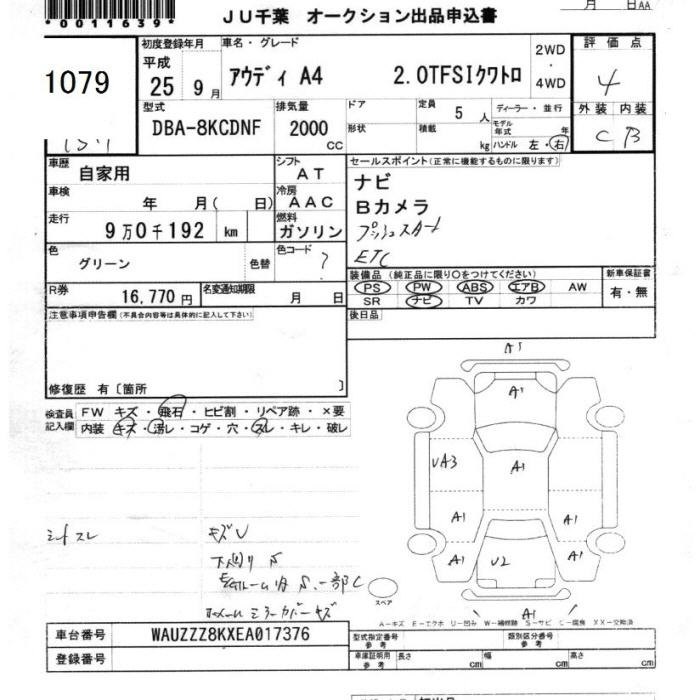 月 日 AA
*0011639*
JU千葉 オークション出品申込書
1079
初度登録年月
平成
25 9 月
車名・グレード
アウディ A4 2.0TFSIクワトロ
2WD
・
4WD
評価点
4
型式
DBA-8KCDNF
排気量
2000
CC
ドア
形状
定員 5 人
積載 kg
ディーラー・並行
モデル年式 年
ハンドル 左・右
外装 内装
C B
車歴
自家用
シフト
AT
セールスポイント(正常に機能するものに限ります)
車検
年 月( 日)
冷房
AAC
ナビ
Bカメラ
プッシュスタート
ETC
走行
9万0千192 km
燃料
ガソリン
色
グリーン
色替
色コード
?
装備品 (純正品に限り○をつけてください)
PS PW ABS エアB AW
SR ナビ TV カワ
新車保証書
有・無
R券
16,770円
名変通知期限
月 日
後日品
注意事項申告欄(不具合内容等は具体的に記入して下さい)
修復歴 有〔箇所 〕
検査員
記入欄
FW キズ・飛石・ヒビ割・リペア跡・×要
内装 キズ・汚レ・コゲ・穴・スレ・キレ・破レ
A1
A1
UA3
A1
A1 A1
A1 U2 A1
A1
シートスレ
キズU
下廻りS
スペア
A−キズ E−エクボ U−凹み W−補修跡 S−サビ C−腐食 XX−交換済
車台番号
WAUZZZ8KXEA017376
登録番号
型式指定番号
参考
類別区分番号
参考
車庫証明用
参考
長さ cm 幅 cm 高さ cm